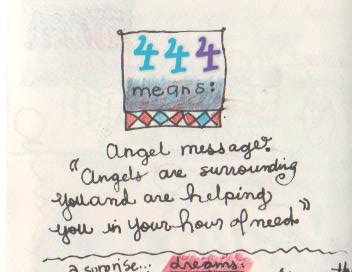 444
means:
Angel message:
"Angels are surrounding
you and are helping
you in your hour of need"
a surprise... dreams: